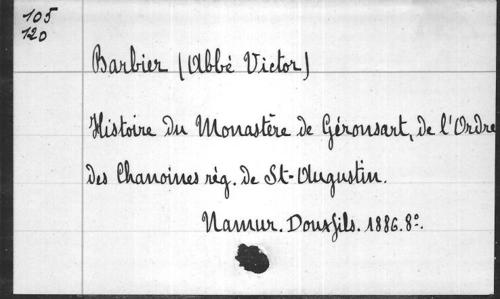 105
120
Barbier (Abbé Victor)
Histoire du Monastère de Géronsart, de l'Ordre
des Chanoines rég. de St-Augustin.
Namur. Douxfils. 1886. 8°.